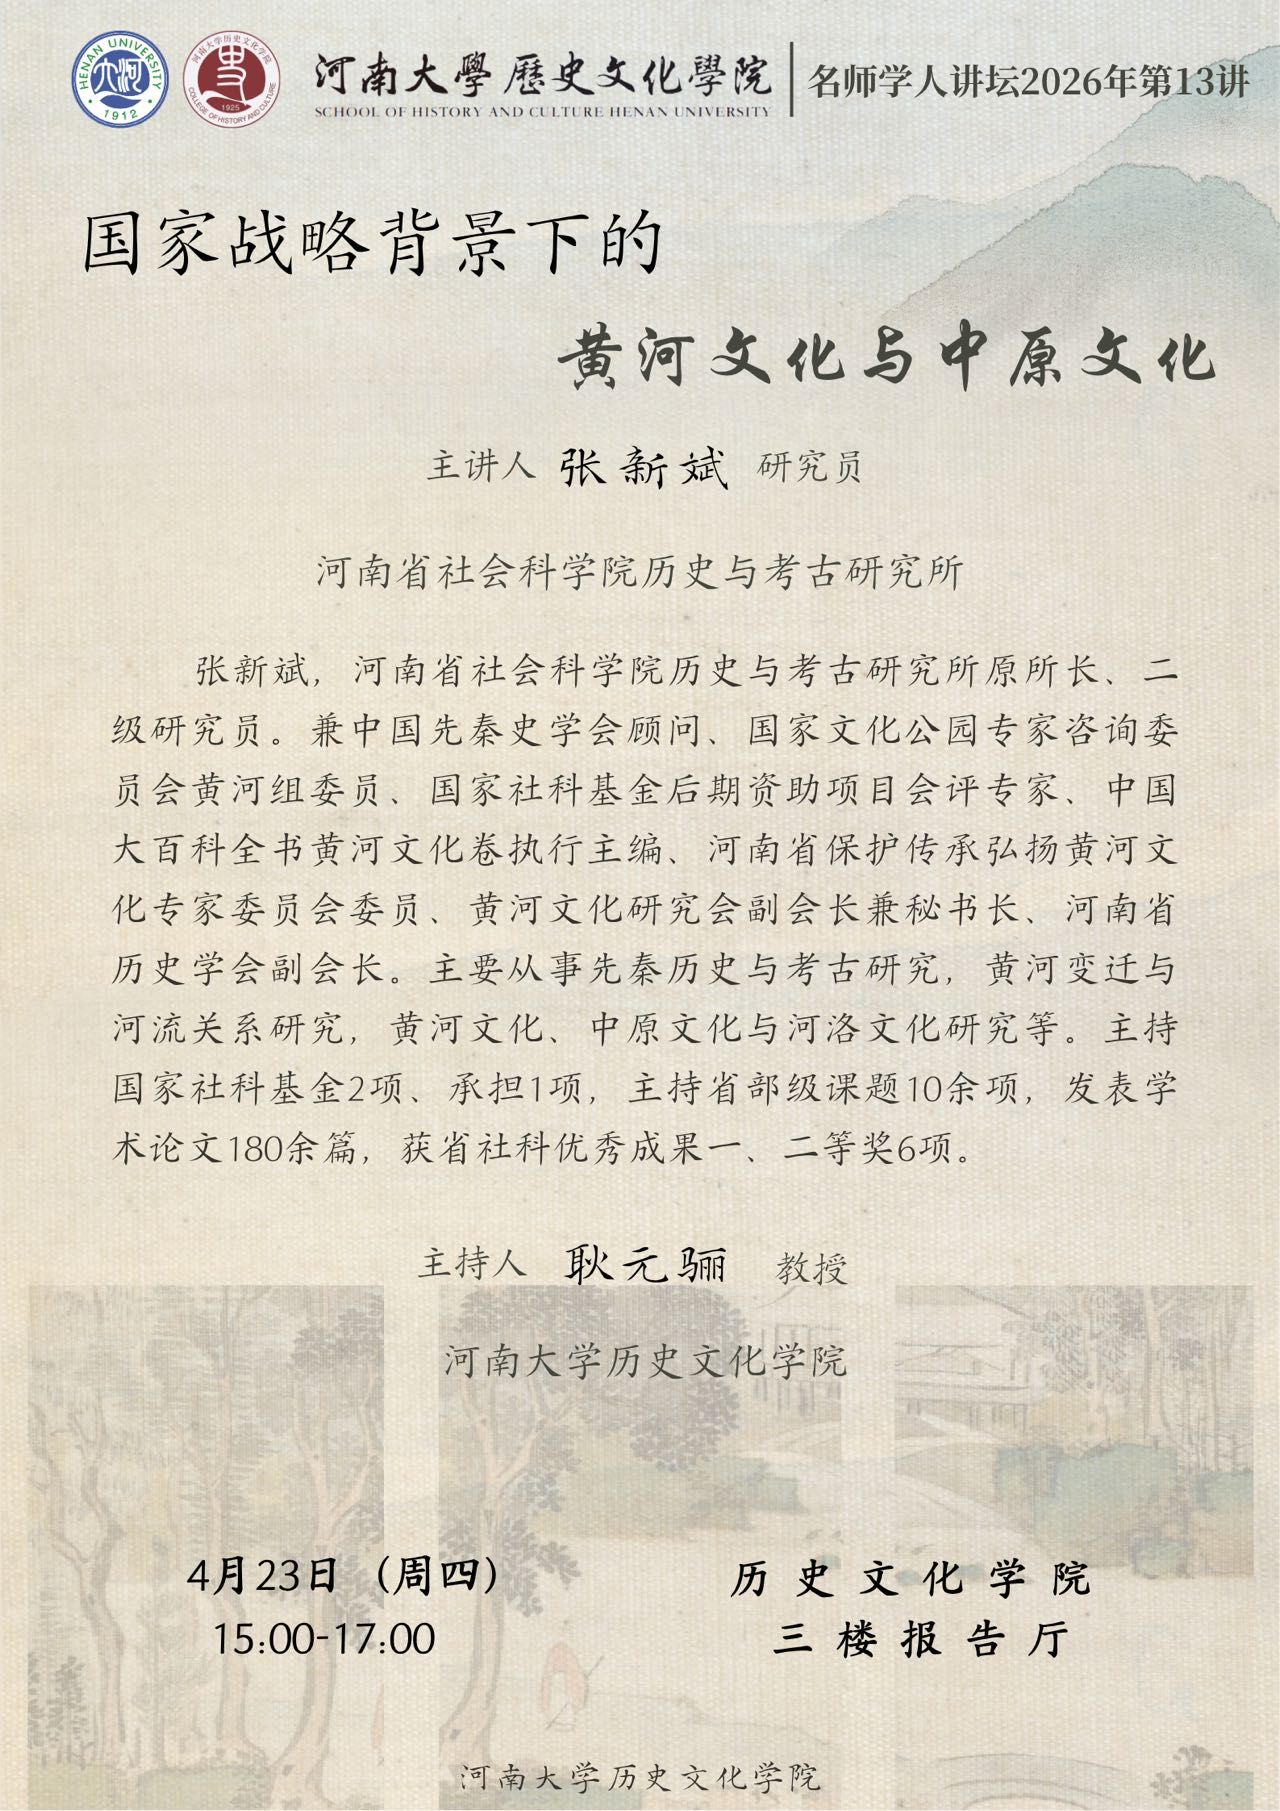 HENAN UNIVERSITY
1912
河南大学历史文化学院
1925
COLLEGE OF HISTORY AND CULTURE
河南大學 歷史文化學院
SCHOOL OF HISTORY AND CULTURE HENAN UNIVERSITY
名师学人讲坛2026年第13讲
国家战略背景下的
黄河文化与中原文化
主讲人 张新斌 研究员
河南省社会科学院历史与考古研究所
张新斌，河南省社会科学院历史与考古研究所原所长、二
级研究员。兼中国先秦史学会顾问、国家文化公园专家咨询委
员会黄河组委员、国家社科基金后期资助项目会评专家、中国
大百科全书黄河文化卷执行主编、河南省保护传承弘扬黄河文
化专家委员会委员、黄河文化研究会副会长兼秘书长、河南省
历史学会副会长。主要从事先秦历史与考古研究，黄河变迁与
河流关系研究，黄河文化、中原文化与河洛文化研究等。主持
国家社科基金2项、承担1项，主持省部级课题10余项，发表学
术论文180余篇，获省社科优秀成果一、二等奖6项。
主持人 耿元骊 教授
河南大学历史文化学院
4月23日（周四）
15:00-17:00
历史文化学院
三楼报告厅
河南大学历史文化学院